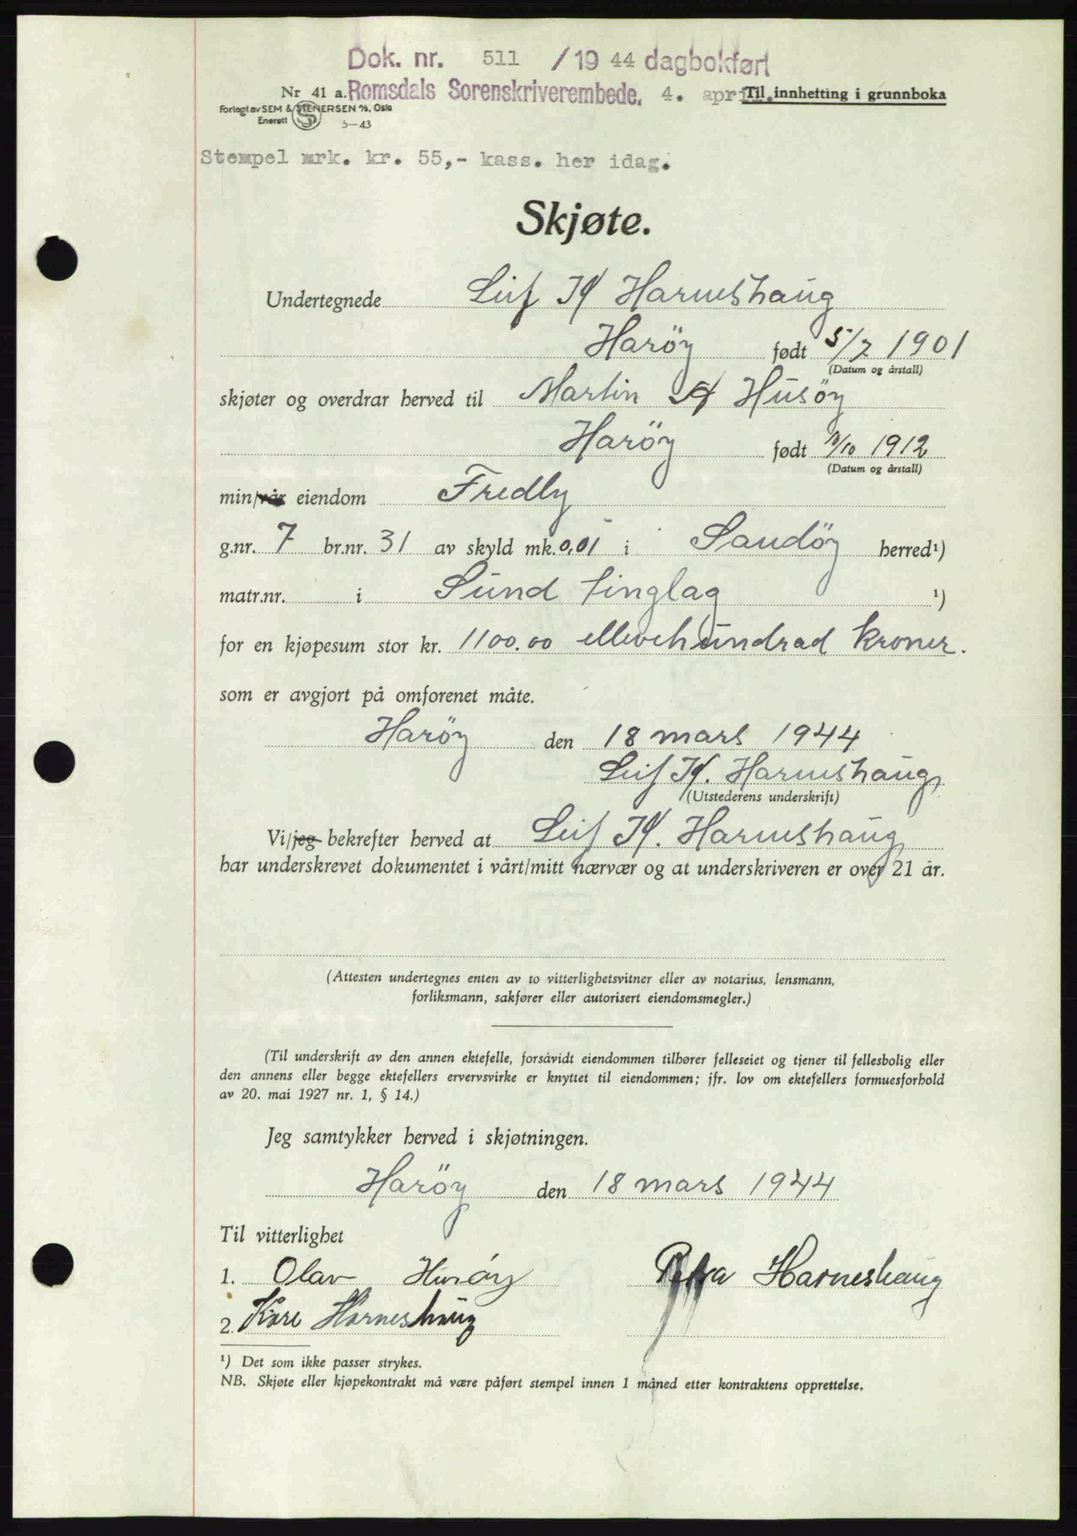 Dok. nr. 511 / 19 44 dagbokført
Nr 41 a. Romsdals Sorenskriverembede, 4. april Til innhetting i grunnboka
Forlagt av SEM & STENERSEN A/S, Oslo
Enerett S 5—43
Stempel mrk. kr. 55,- kass. her idag.
Skjøte.
Undertegnede Leif K Harneshaug
Haröy født 5/7 1901
(Datum og årstall)
skjøter og overdrar herved til Martin Husöy
Haröy født /10 1912
(Datum og årstall)
min/vår eiendom Fredly
g.nr. 7 br.nr. 31 av skyld mk. 0,01 i Sandöy herred¹)
matr.nr. i Sund tinglag ¹)
for en kjøpesum stor kr. 1100.00 ellevehundrad kroner.
som er avgjort på omforenet måte.
Haröy den 18 mars 1944
Leif K. Harneshaug
(Utstederens underskrift)
Vi/jeg bekrefter herved at Leif K. Harneshaug
har underskrevet dokumentet i vårt/mitt nærvær og at underskriveren er over 21 år.
(Attesten undertegnes enten av to vitterlighetsvitner eller av notarius, lensmann,
forliksmann, sakfører eller autorisert eiendomsmegler.)
(Til underskrift av den annen ektefelle, forsåvidt eiendommen tilhører felleseiet og tjener til fellesbolig eller
den annens eller begge ektefellers ervervsvirke er knyttet til eiendommen; jfr. lov om ektefellers formuesforhold
av 20. mai 1927 nr. 1, § 14.)
Jeg samtykker herved i skjøtningen.
Haröy den 18 mars 1944
Til vitterlighet
1. Olav Husöy Petra Harneshaug
2. Kåre Harneshaug
¹) Det som ikke passer strykes.
NB. Skjøte eller kjøpekontrakt må være påført stempel innen 1 måned etter kontraktens opprettelse.